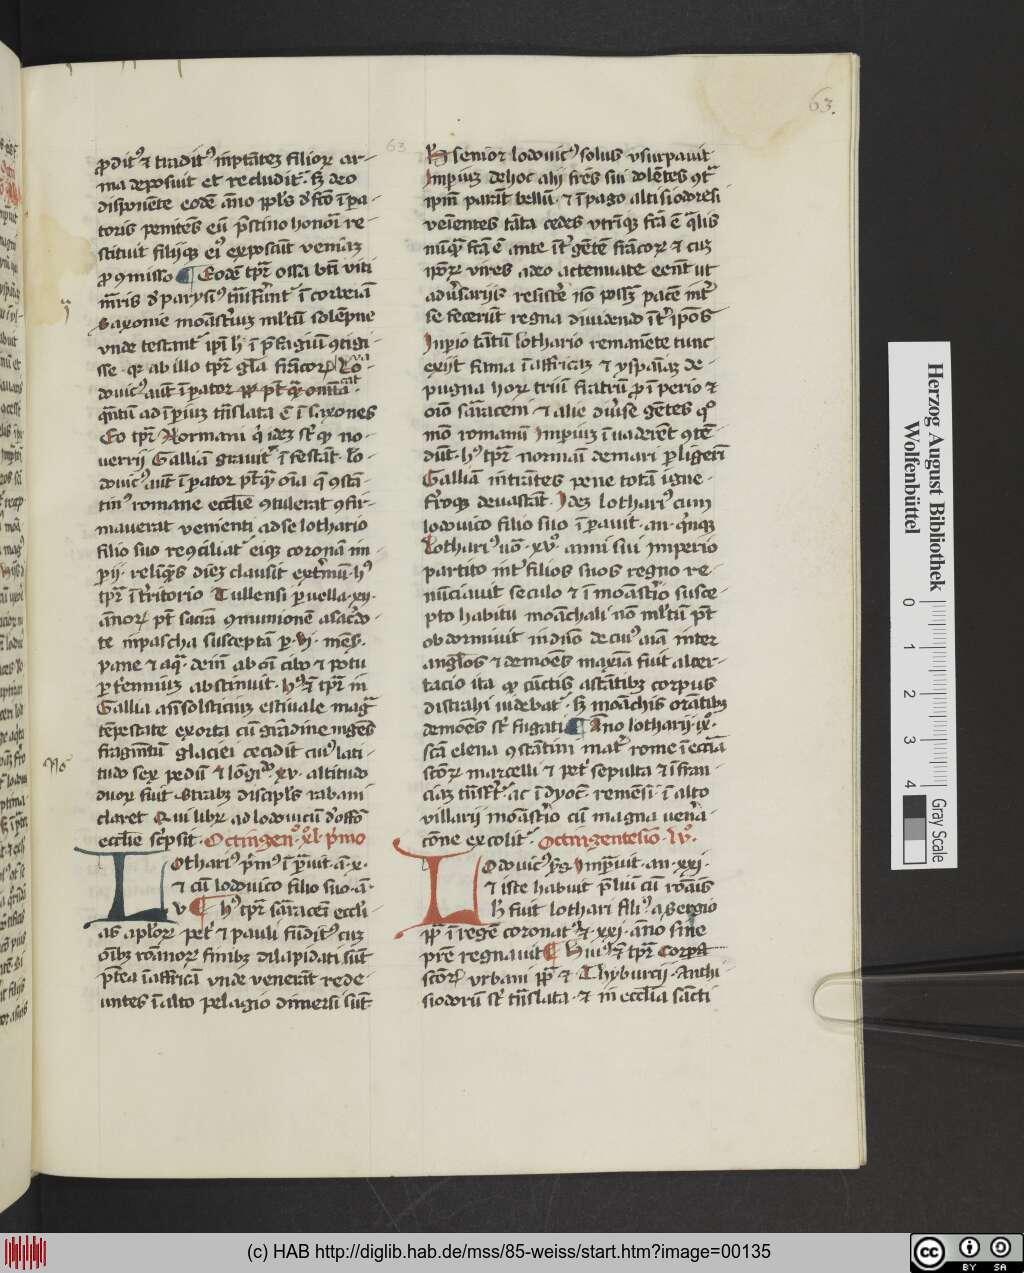 63.
63
ꝓdit᷒ ⁊ tradit᷒ inp̄tātez filioꝝ ar-
ma deposuit et recludit᷑. sꝫ deo
disponēte eodē āno ipp̄ls d̄ fc̄o ī pa-
toris penitēs eū pͥstino honoīri re-
stituit filijqꝫ ei᷒ exposcūt veniaz
ꝓ ꝯmisso ¶ Eodē tꝑꝛ ossa bt̄i viti
m̄ris d̄ parysi᷒ tn̄sfer̄unt᷑ ī corbeiā
Saxonie moāsteriuz ml̄tū solēpne
vnde testant᷑ ipī h᷑ ī p̄sagiū ꝯtigi-
sse. qꝛ ab illo tꝑꝛ gl̄a francoꝝ Lo-
dovic᷒ aūt īpator
q̄ntū ad īperiuz tn̄slata ē ī saxones
Eo tꝑꝛ Normani q̇ idez st᷑ qͥ no-
uerrij Galliā grauit᷑ īfestāt᷑. Lo-
dovic᷒ aūt īpator pt᷑qͣ oīa q̄ ꝯstā-
tin᷒ romane eccl̄ie ꝯtulerat ꝯfir-
mauerat venienti ad se lothario
filio suo recōciliat᷑ eiqꝫ coronā im-
perij. reliq̄s diez clausit ext̄mū. h᷒
tꝑꝛ ī t̄rritorio Tullensi puella .xij.
ānoꝝ pt᷑ sacrā ꝯmunionē a sac̄do-
te in pascha susceptā ꝑ .vi. mēs.
pane ⁊ aq̄. dein̄ ab oī cibo ⁊ potu
ꝑ t̄ennīuz abstinuit. h᷒ ⁊ tꝑꝛ in
Gallia an̄ solsticiuz estiuale magͣ
tēpestate exorta cū grādine ingēs
fragmētū glaciei cecidit cui᷒ lati-
tudo sex pedū ⁊ lōgitdo xv. altitudo
duoꝝ fuit. Strabꝫ discipl᷒s rabani
claret Qui libꝝ ad lodouicū d̄ offō
eccl̄ie sc̄psit. Octingen᷒. xl. pͥmo
Lothari᷒ pͥm᷒ īperauit ā. x.
⁊ cū lodouico filio suo ā.
v ¶ h᷒ tꝑꝛ sāraceni eccl̄i-
as apl̄oꝝ pet̄ ⁊ pauli fūdit᷒ cuz
oībꝫ rōmanoꝝ finibꝫ dilapidati sūt
p᷑tea ī affricā vnde venerāt rede-
untes ī alto pelagio dimersi sūt
Ꝗ senior lodouic᷒ solus vsurpauit
Imperiuz de hoc alij fr̄es sui dolētes ꝯt̄
ipm̄ parāt bellū. ⁊ ī pago altisiodresi
veīentes tāta cedes vtrīqꝫ fc̄a ē q̄lis
nūqͣ fc̄a ē ante īt᷑ gētē frācoꝝ ⁊ cuz
ipoꝝ vires adeo actenuate eēnt ut
aduersarijs resistēr nō possz pacē int̄
se fecerūt regna diuidendo īt᷑ ip̄os
Imperio tātū lothario remanēte tunc
exijt fama ī affricaz ⁊ yspaniaz de-
pugna hoꝝ triū fratrū ꝓ īperio ⁊
oīo sāraceni. ⁊ alie diuerse gētes quo-
mō romanū imperiuz īuaderēt ꝯtē-
dūt. h᷒ tꝑꝛ normāni de mari ꝑ ligerī
Galliā intrātes pene totā igne-
ferroqꝫ deuastāt᷑. Idez lothari᷒ cum
lodouico filio suo īperauit. an. qͥnqꝫ
Lothari᷒ uō .xv᷒. anni sui imperio
partito int̄ filios suos regno re-
nūciauit seculo ⁊ ī moāstrio susce-
pto habitu moāchali nō ml̄tū pt᷑
obdormiuit in dn̄o de cui᷒ aīa inter
angl̄os ⁊ demoēs maxīa fuit alter-
tacio ita qͥ cūctis astātibꝫ corpus
distrahi uidebat᷑. sꝫ moāchis orātibꝫ
demoēs st᷑ fugati ¶ Āno lotharij .ix᷒.
sc̄a elena ꝯstātini mat̄ rome ī eccl̄ia
sc̄oꝝ marcelli ⁊ pet̄ sepulta ⁊ ī fran-
ciaz tn̄sfert᷑ ac ī dyoc᷑. remēsi. ī alto
villarij moāstrio cū magna uen̄a-
cōne excolit᷑. Octingentesīo. lv᷒.
Lodouic᷒ ij᷒s. īmperauit. an. xxj.
⁊ iste habuit p̄liū cū rōānis
h᷑ fuit lothari fili᷒ a Sergio
pp̄ ī regē coronat᷒ ⁊ .xxj. āno sine
pr̄e regnauit ¶ Hui᷒ ⁊ tꝑꝛ corpora
sc̄oꝝ vrbani pp̄ ⁊ Thyburcij. Anthi-
siodorū st᷑ tn̄slata. ⁊ in eccl̄ia sāncti
Herzog August Bibliothek
Wolfenbüttel
0 1 2 3 4
Gray Scale
(c) HAB http://diglib.hab.de/mss/85-weiss/start.htm?image=00135
cc BY SA